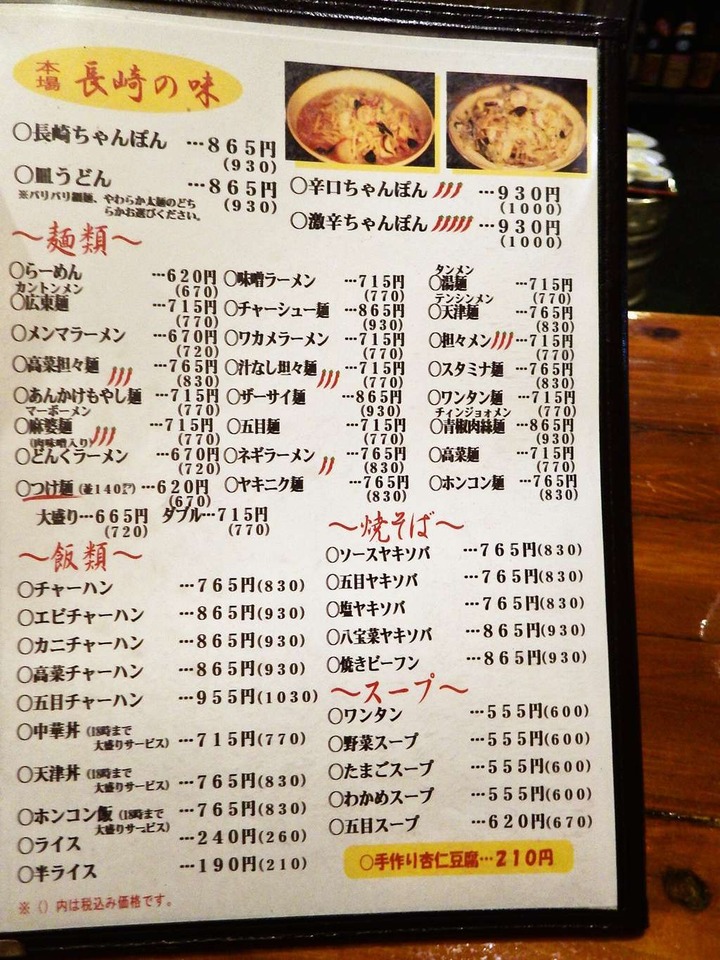 本場 長崎の味
○長崎ちゃんぽん …865円
(930)
○皿うどん …865円
(930)
※パリパリ細麺、やわらか太麺のどち
らかお選びください。
○辛口ちゃんぽん …930円
(1000)
○激辛ちゃんぽん …930円
(1000)
～麺類～
○らーめん …620円
(670)
カントンメン
○広東麺 …715円
(770)
○メンマラーメン …670円
(720)
○高菜担々麺 …765円
(830)
○あんかけもやし麺 …715円
(770)
マーボーメン
○麻婆麺 …715円
(肉味噌入り) (770)
○どんくラーメン …670円
(720)
○つけ麺 (並140㌘) …620円
(670)
大盛り…665円 ダブル…715円
(720) (770)
○味噌ラーメン …715円
(770)
○チャーシュー麺 …865円
(930)
○ワカメラーメン …715円
(770)
○汁なし担々麺 …715円
(770)
○ザーサイ麺 …865円
(930)
○五目麺 …715円
(770)
○ネギラーメン …765円
(830)
○ヤキニク麺 …765円
(830)
タンメン
○湯麺 …715円
(770)
テンシンメン
○天津麺 …765円
(830)
○担々メン …715円
(770)
○スタミナ麺 …765円
(830)
○ワンタン麺 …715円
(770)
チィンジョオメン
○青椒肉絲麺 …865円
(930)
○高菜麺 …715円
(770)
○ホンコン麺 …765円
(830)
～飯類～
○チャーハン …765円(830)
○エビチャーハン …865円(930)
○カニチャーハン …865円(930)
○高菜チャーハン …865円(930)
○五目チャーハン …955円(1030)
○中華丼 (18時まで
大盛りサービス) …715円(770)
○天津丼 (18時まで
大盛りサービス) …765円(830)
○ホンコン飯 (18時まで
大盛りサービス) …765円(830)
○ライス …240円(260)
○半ライス …190円(210)
※（）内は税込み価格です。
～焼そば～
○ソースヤキソバ …765円(830)
○五目ヤキソバ …765円(830)
○塩ヤキソバ …765円(830)
○八宝菜ヤキソバ …865円(930)
○焼きビーフン …865円(930)
～スープ～
○ワンタン …555円(600)
○野菜スープ …555円(600)
○たまごスープ …555円(600)
○わかめスープ …555円(600)
○五目スープ …620円(670)
○手作り杏仁豆腐…210円